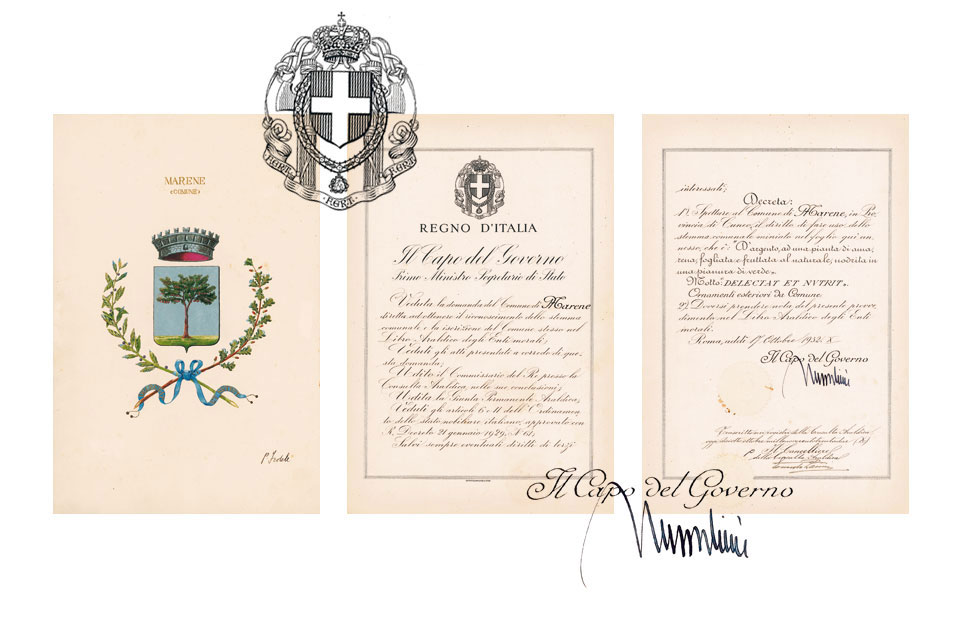 MARENE
«COMUNE»
P. Fedeli
FERT FERT FERT
REGNO D'ITALIA
Il Capo del Governo
Primo Ministro Segretario di Stato
Veduta la domanda del Comune di Marene
diretta ad ottenere il riconoscimento dello stemma
comunale e la iscrizione del Comune stesso nel
Libro Araldico degli Enti morali;
Veduti gli atti presentati a corredo di que-
sta domanda;
Udito il Commissario del Re presso la
Consulta Araldica, nelle sue conclusioni;
Udita la Giunta Permanente Araldica,
Veduti gli articoli 6 e 11 dell'Ordinamen-
to dello stato nobiliare italiano, approvato con
R.° Decreto 21 gennaio 1929, N° 61;
Salvi sempre eventuali diritti di terzi
interessati;
Decreta:
1°) Spettare al Comune di Marene, in Pro-
vincia di Cuneo, il diritto di fare uso dello
stemma comunale miniato nel foglio qui an-
nesso, che è: "D'argento, ad una pianta di ama-
rena, fogliata e fruttata al naturale, nodrita in
una pianura di verde".
Motto: "DELECTAT ET NVTRIT".
Ornamenti esteriori da Comune
2°) Doversi prendere nota del presente provve-
dimento nel Libro Araldico degli Enti
morali.
Roma, addì 17 Ottobre 1932. X
Il Capo del Governo
Mussolini
Trascritto nei registri della Consulta Araldica
Il Cancelliere
della Consulta Araldica
Il Capo del Governo
Mussolini